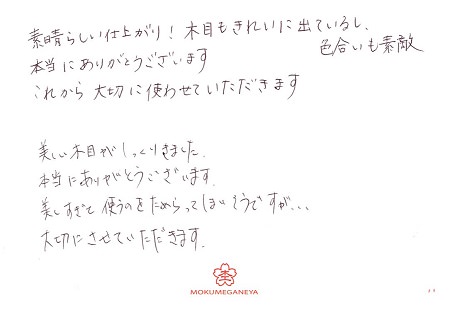 素晴らしい仕上がり！木目もきれいに出ているし、
色合いも素敵
本当にありがとうございます
これから大切に使わせていただきます
美しい木目がしっくりきました。
本当にありがとうございます。
美しすぎて使うのをためらってしまいそうですが…
大切にさせていただきます。
杢
MOKUMEGANEYA